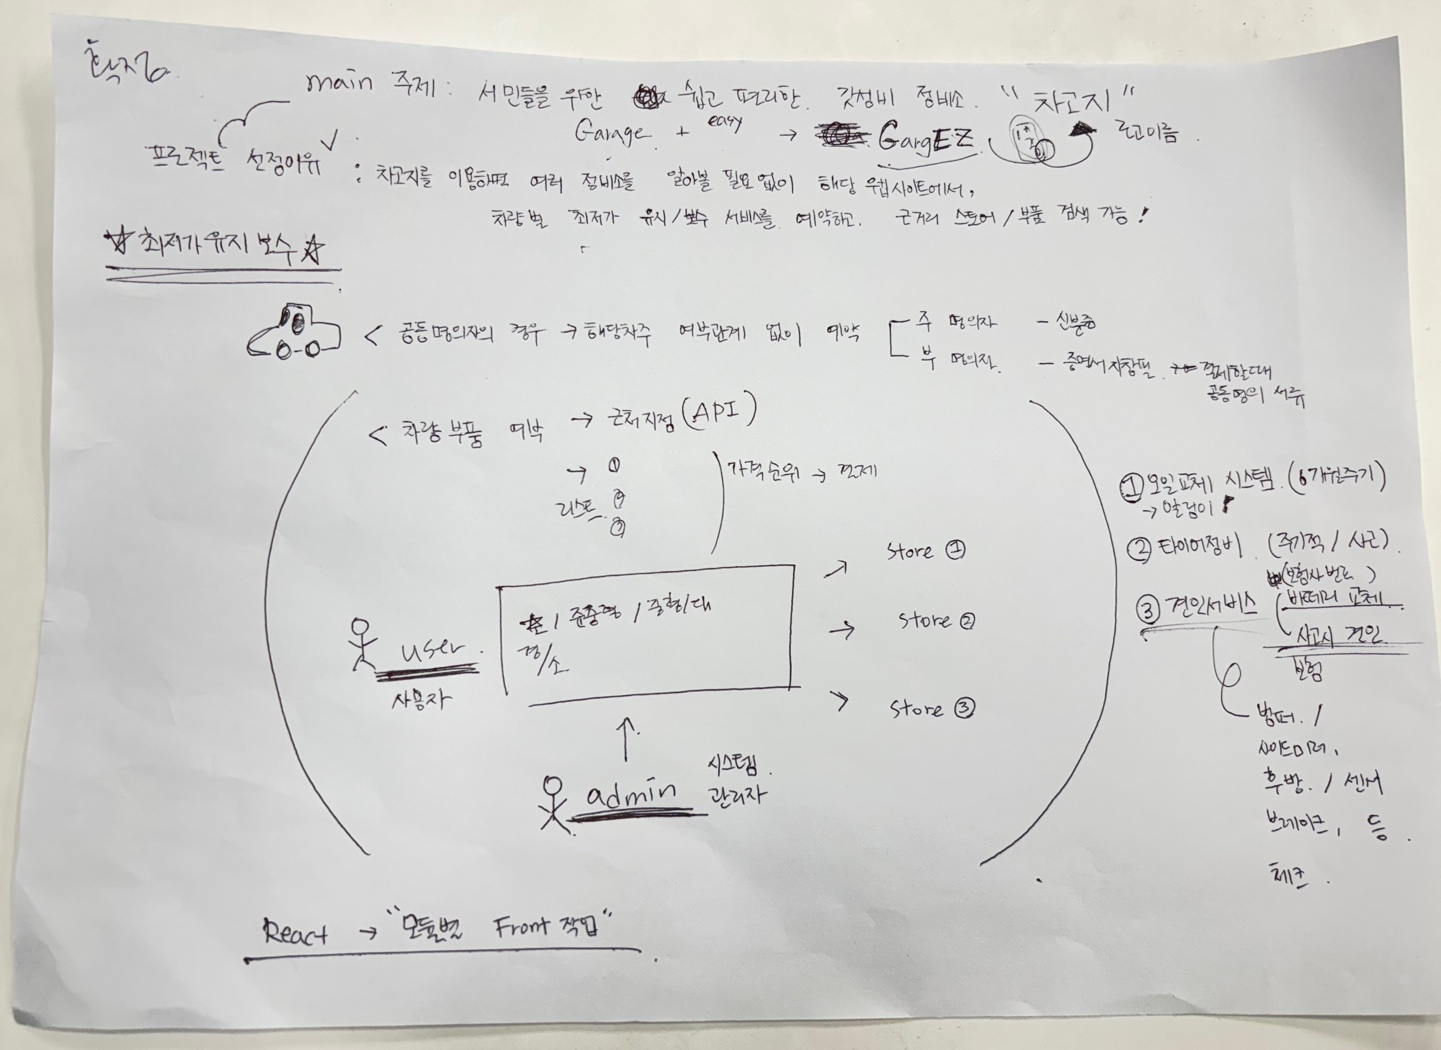 확정
main 주제 : 서민들을 위한 쉽고 편리한 갓성비 정비소. "차고지"
Garage + easy → GargEZ 로고이름
프로젝트 선정이유
: 차고지를 이용하면 여러 정비소를 알아볼 필요없이 해당 웹사이트에서,
차량별 최저가 유지/보수 서비스를 예약하고. 근거리 스토어/부품 검색 가능!
☆최저가 유지 보수☆
< 공동명의자의 경우 → 해당차주 여부관계 없이 예약
주 명의자 - 신분증
부 명의자. - 증명서 지참필. 결제할때
공동명의 서류
< 차량 부품 여부 → 근처지점 (API)
→ ①
리스트. ②
③
가격순위 → 결제
user.
사용자
/ 준중형 / 중형/대
경/소
→ store ①
→ store ②
→ store ③
admin
시스템.
관리자
① 오일교체 시스템. (6개월주기)
→
② 타이어정비. (주기적 / 사고)
(보험사번호)
③ 견인서비스
배떼리 교체
사고시 견인
보험
범퍼. /
사이드미러,
후방. / 센서
브레이크, 등.
체크.
React → "모듈별 Front 작업"